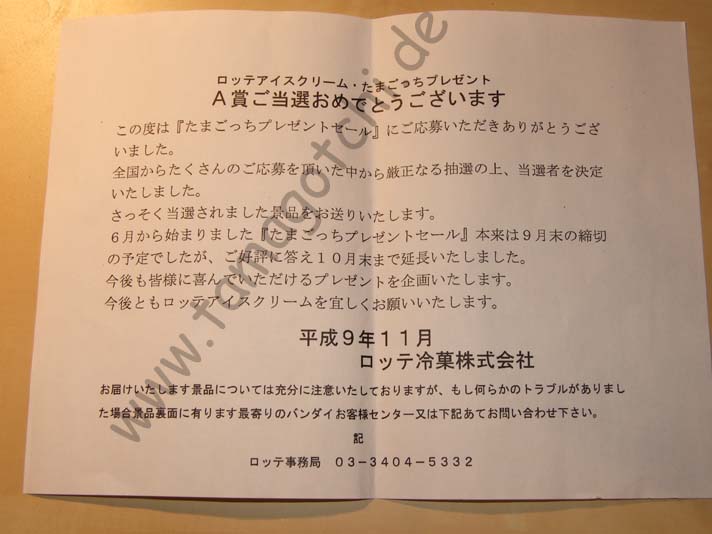 ロッテアイスクリーム・たまごっちプレゼント
A賞ご当選おめでとうございます
この度は『たまごっちプレゼントセール』にご応募いただきありがとうござ
いました。
全国からたくさんのご応募を頂いた中から厳正なる抽選の上、当選者を決定
いたしました。
さっそく当選されました景品をお送りいたします。
6月から始まりました『たまごっちプレゼントセール』本来は9月末の締切
の予定でしたが、ご好評に答え10月末まで延長いたしました。
今後も皆様に喜んでいただけるプレゼントを企画いたします。
今後ともロッテアイスクリームを宜しくお願いいたします。
平成9年11月
ロッテ冷菓株式会社
お届けいたします景品については充分に注意いたしておりますが、もし何らかのトラブルがありまし
た場合景品裏面に有ります最寄りのバンダイお客様センター又は下記あてお問い合わせ下さい。
記
ロッテ事務局 03-3404-5332
www.tamagotchi.de